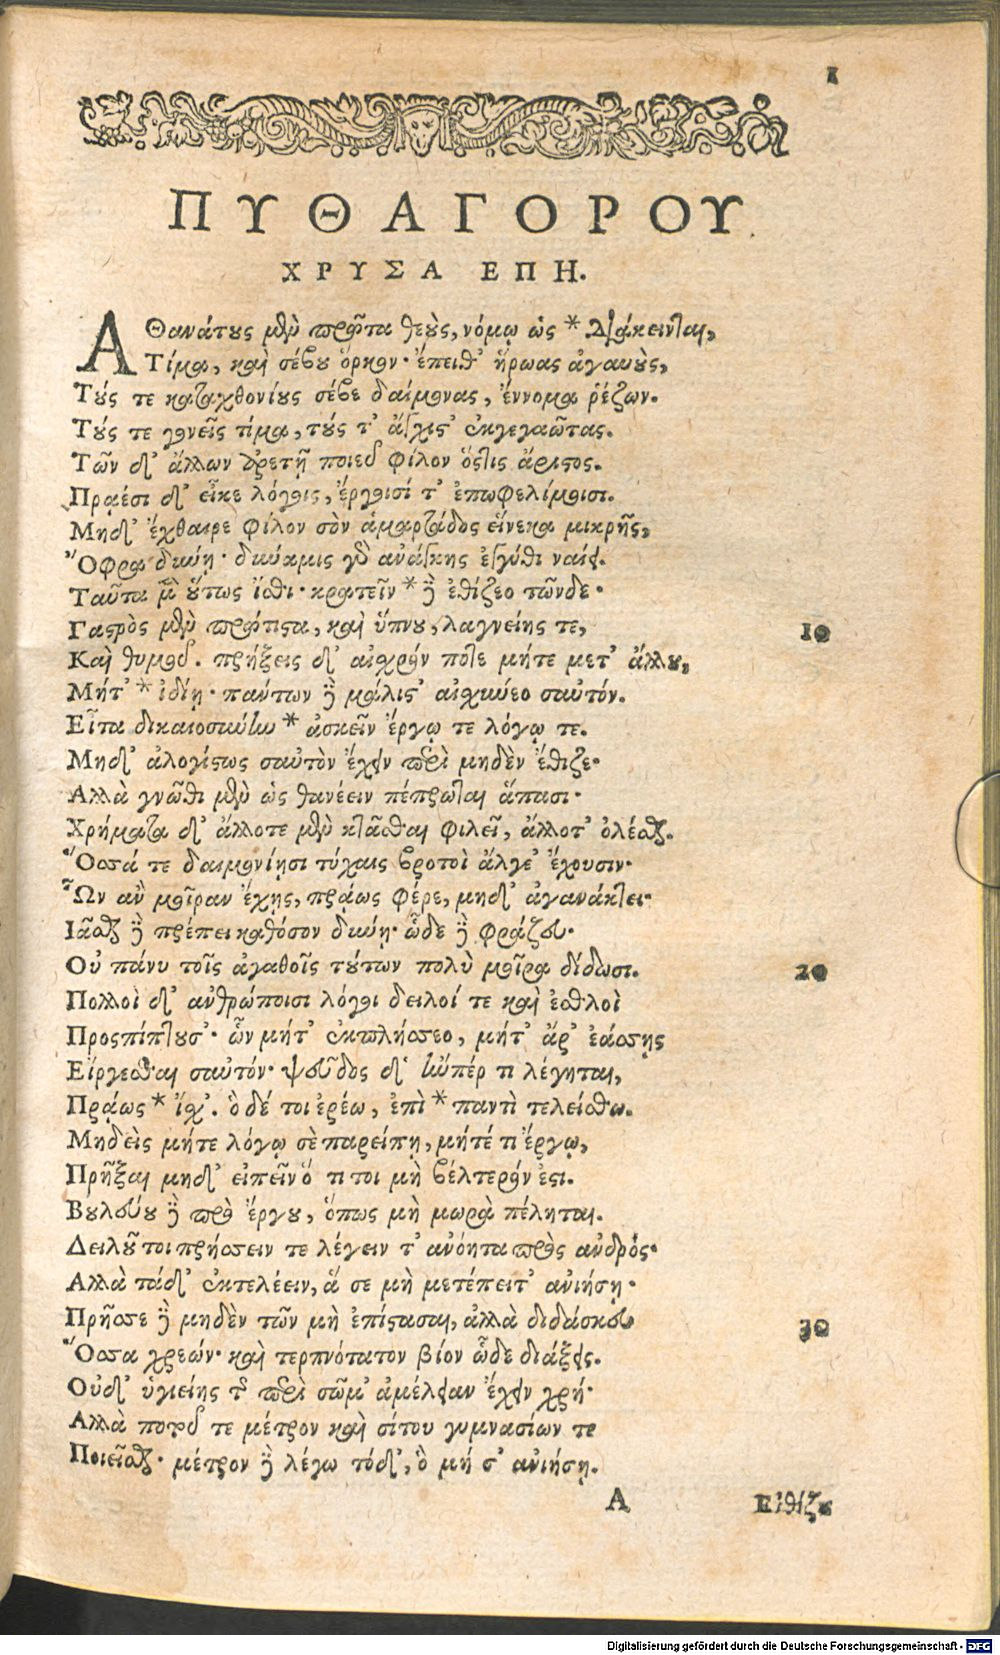 1
ΠΥΘΑΓΟΡΟΥ
ΧΡΥΣΑ ΕΠΗ.
Αθανάτους μὲν πρῶτα θεοὺς, νόμῳ ὡς * διάκεινται,
Τίμα, καὶ σέβου ὅρκον· ἔπειθ' ἥρωας ἀγαυοὺς,
Τούς τε καταχθονίους σέβε δαίμονας, ἔννομα ῥέζων.
Τούς τε γονεῖς τίμα, τούς τ' ἄγχιστ' ἐκγεγαῶτας.
Τῶν δ' ἄλλων ἀρετῇ ποιεῦ φίλον ὅστις ἄριστος.
Πραέσι δ' εἶκε λόγοις, ἔργοισί τ' ἐπωφελίμοισι.
Μηδ' ἔχθαιρε φίλον σὸν ἁμαρτάδος εἵνεκα μικρῆς,
Ὄφρα δύνῃ· δύναμις γὰρ ἀνάγκης ἐγγύθι ναίει.
Ταῦτα μὲν οὕτως ἴσθι· κρατεῖν * δὲ ἐθίζεο τῶνδε·
Γαστρὸς μὲν πρώτιστα, καὶ ὕπνου, λαγνείης τε, 10
Καὶ θυμοῦ. πρήξεις δ' αἰσχρόν ποτε μήτε μετ' ἄλλου,
Μήτ' * ἰδίῃ· πάντων δὲ μάλιστ' αἰσχύνεο σαυτόν.
Εἶτα δικαιοσύνην * ἀσκεῖν ἔργῳ τε λόγῳ τε.
Μηδ' ἀλογίστως σαυτὸν ἔχειν περὶ μηδὲν ἔθιζε·
Ἀλλὰ γνῶθι μὲν ὡς θανέειν πέπρωται ἅπασι·
Χρήματα δ' ἄλλοτε μὲν κτᾶσθαι φιλεῖ, ἄλλοτ' ὀλέσθαι.
Ὅσσά τε δαιμονίῃσι τύχαις βροτοὶ ἄλγε' ἔχουσιν·
Ὧν ἂν μοῖραν ἔχῃς, πρᾴως φέρε, μηδ' ἀγανάκτει·
Ἰᾶσθαι δὲ πρέπει καθόσον δύνῃ· ὧδε δὲ φράζευ·
Οὐ πάνυ τοῖς ἀγαθοῖς τούτων πολὺ μοῖρα δίδωσι. 20
Πολλοὶ δ' ἀνθρώποισι λόγοι δειλοί τε καὶ ἐσθλοὶ
Προσπίπτουσ'· ὧν μήτ' ἐκπλήσσεο, μήτ' ἄρ' ἐάσσῃς
Εἴργεσθαι σαυτόν· ψεῦδος δ' ἤνπέρ τι λέγηται,
Πρᾴως * ἴσχ'. ὃ δέ τοι ἐρέω, ἐπὶ * παντὶ τελείσθω.
Μηδεὶς μήτε λόγῳ σὲ παρείπῃ, μήτέ τι ἔργῳ,
Πρῆξαι μηδ' εἰπεῖν ὅ τι τοι μὴ βέλτερόν ἐστι.
Βουλεύου δὲ πρὸ ἔργου, ὅπως μὴ μωρὰ πέληται.
Δειλοῦ τοι πρήσσειν τε λέγειν τ' ἀνόητα πρὸς ἀνδρός·
Ἀλλὰ τάδ' ἐκτελέειν, ἅ σε μὴ μετέπειτ' ἀνιήσῃ·
Πρῆσσε δὲ μηδὲν τῶν μὴ ἐπίστασαι, ἀλλὰ διδάσκευ 30
Ὅσσα χρεών· καὶ τερπνότατον βίον ὧδε διάξεις.
Οὐδ' ὑγιείης τῆς περὶ σῶμ' ἀμέλειαν ἔχειν χρή·
Ἀλλὰ ποτοῦ τε μέτρον καὶ σίτου γυμνασίων τε
Ποιεῖσθαι· μέτρον δὲ λέγω τόδ', ὃ μή σ' ἀνιήσῃ.
A Εἰθίζε
Digitalisierung gefördert durch die Deutsche Forschungsgemeinschaft - DFG